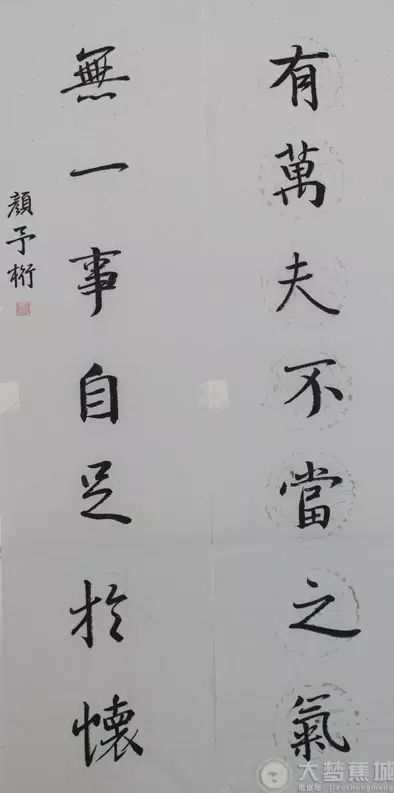 有萬夫不當之氣
無一事自足於懷
顏予桁
大梦蕉城